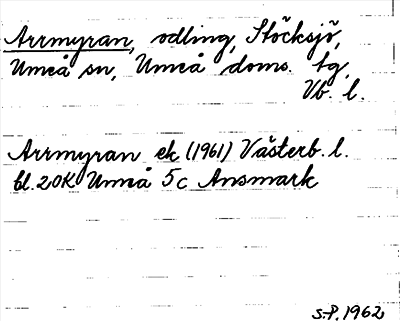 Arrmyran, odling, Stöcksjö,
Umeå sn, Umeå doms. tg,
Vb. l.
Arrmyran ek (1961) Västerb. l.
bl. 20K Umeå 5c Ansmark
S.P. 1962